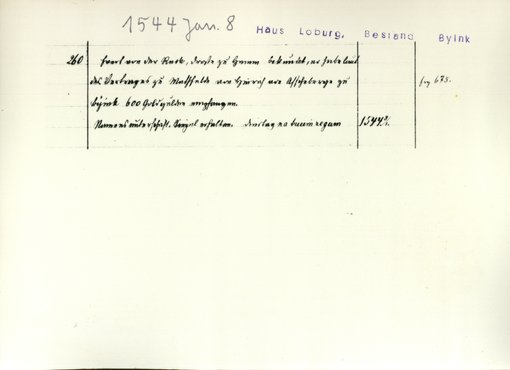 1544 Jan. 8 Haus Loburg, Bestand Byink
260 Evert von der Reck, Droste zu Hamm bekundet, er habe laut
des Vertrages zu von Heinrich von Ascheberge zu
Byink 600 Goldgulden empfangen.
Namensunterschrift. Siegel erhalten. Dinstag na trium regum 1544
fog 675.